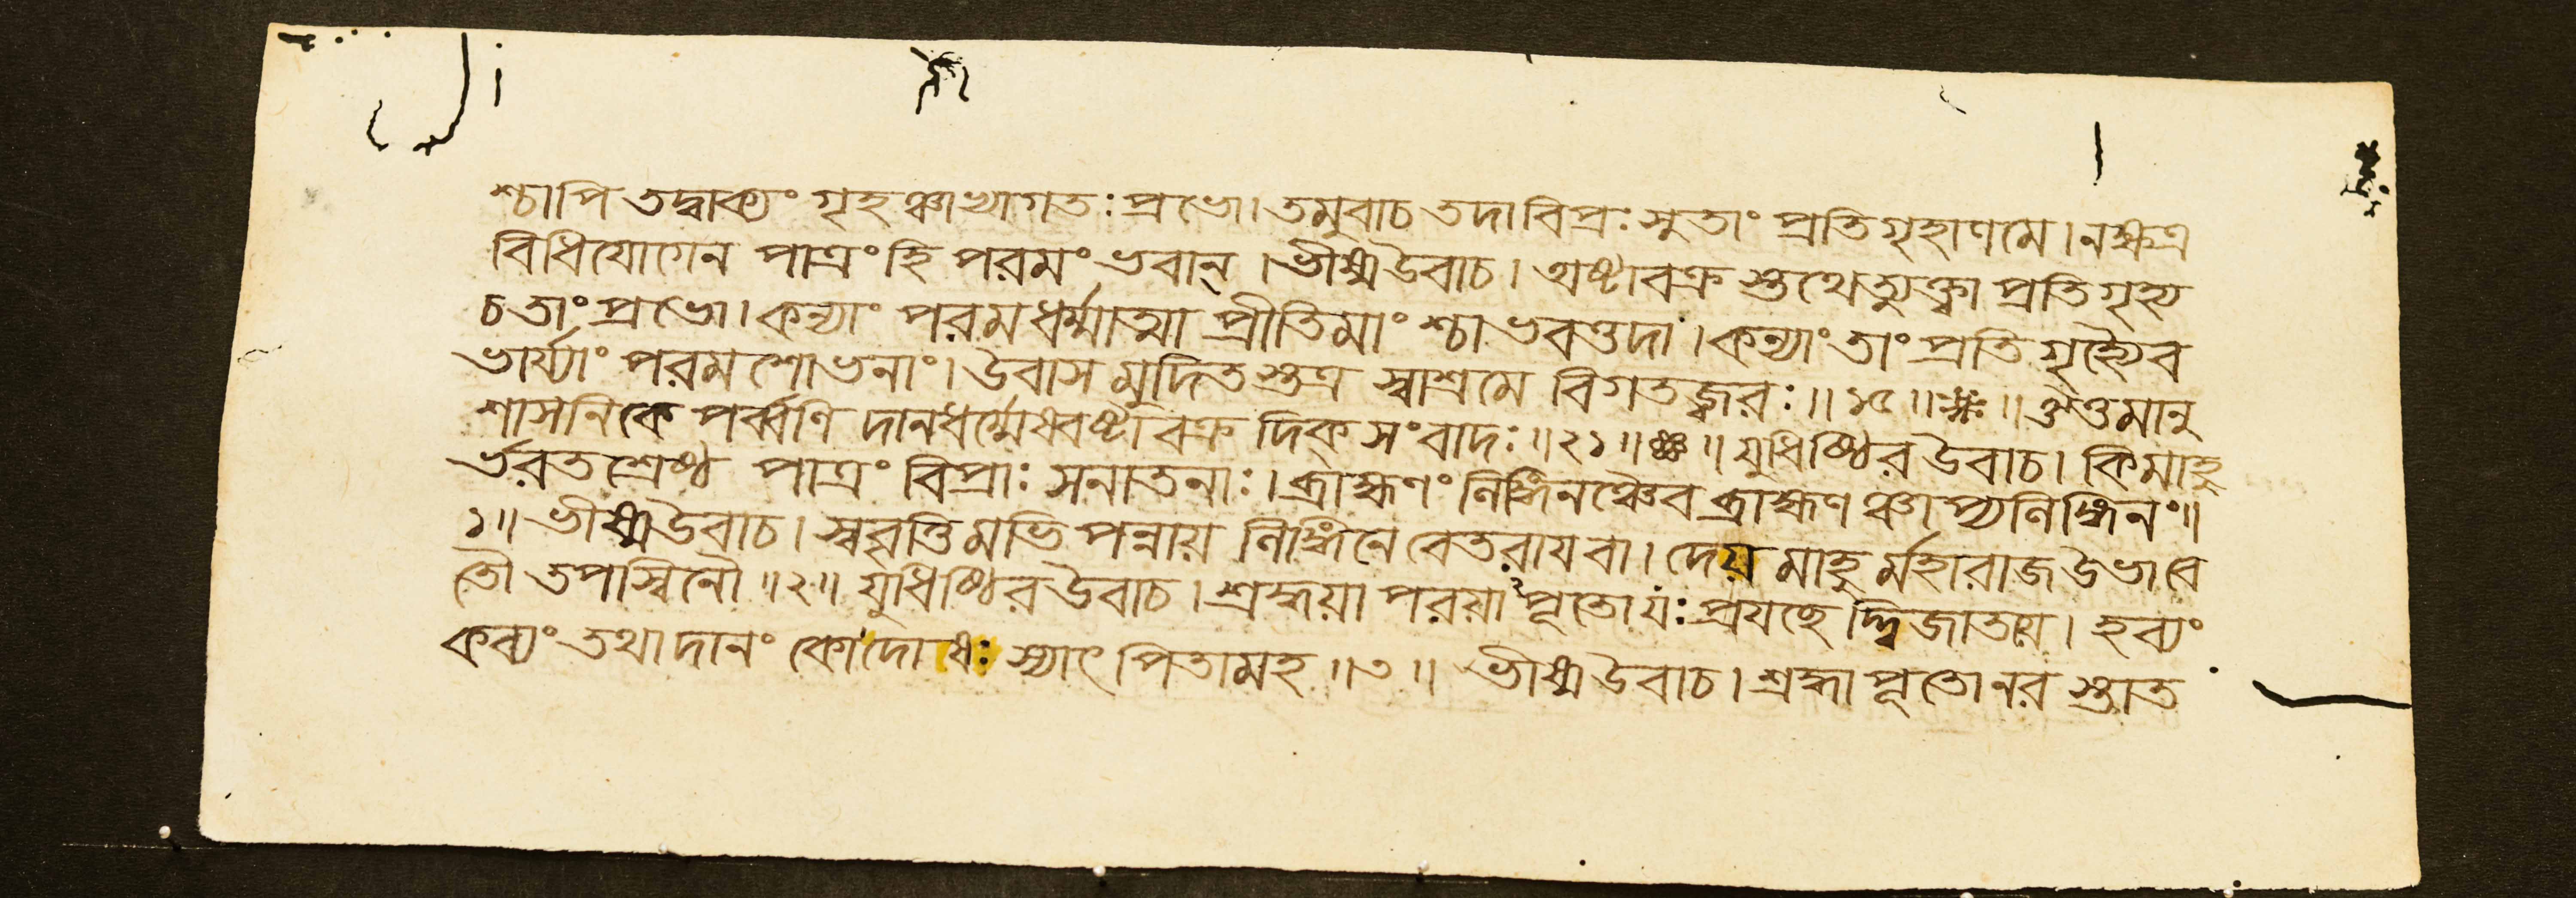 শ্চাপি তদ্বাক্যং গৃহঞ্চাখ্যাগতঃ প্রভো। তমুবাচ তদা বিপ্রঃ সুতাং প্রতিগৃহাণ মে। নক্ষত্র
বিধিযোগেন পাত্রং হি পরমং ভবান্। ভীষ্ম উবাচ। অষ্টাবক্র স্তথেত্যুক্ত্বা প্রতিগৃহ্য
চ তাং প্রভো। কন্যাং পরমধর্ম্মাত্মা প্রীতিমাংশ্চাভবত্তদা। কন্যাং তাং প্রতিগৃহ্যৈব
ভার্য্যাং পরমশোভনাং। উবাস মুদিতস্তত্র স্বাশ্রমে বিগতজ্বরঃ॥ ১৫॥ ঔত্তমানু
শাসনিকে পর্ব্বণি দানধর্ম্মেষ্বষ্টাবক্র দিক্ সংবাদঃ॥২১॥ যুধিষ্ঠির উবাচ। কিমাহু
র্ভরতশ্রেষ্ঠ পাত্রং বিপ্রাঃ সনাতনাঃ। ব্রাহ্মণং লিঙ্গিনঞ্চৈব ব্রাহ্মণঞ্চাপ্যলিঙ্গিনং॥
১॥ ভীষ্ম উবাচ। স্ববৃত্তিমভিপন্নায় লিঙ্গিনে বেতরায বা। দেয়মাহু র্মহারাজ উভাবে
তৌ তপস্বিনৌ॥২॥ যুধিষ্ঠির উবাচ। শ্রদ্ধয়া পরয়া পূতো যঃ প্রযচ্ছে দ্দ্বিজাতয়ে। হব্যং
কব্যং তথা দানং কো দোষঃ স্যাৎ পিতামহ॥৩॥ ভীষ্ম উবাচ। শ্রদ্ধাপূতো নর স্তাত